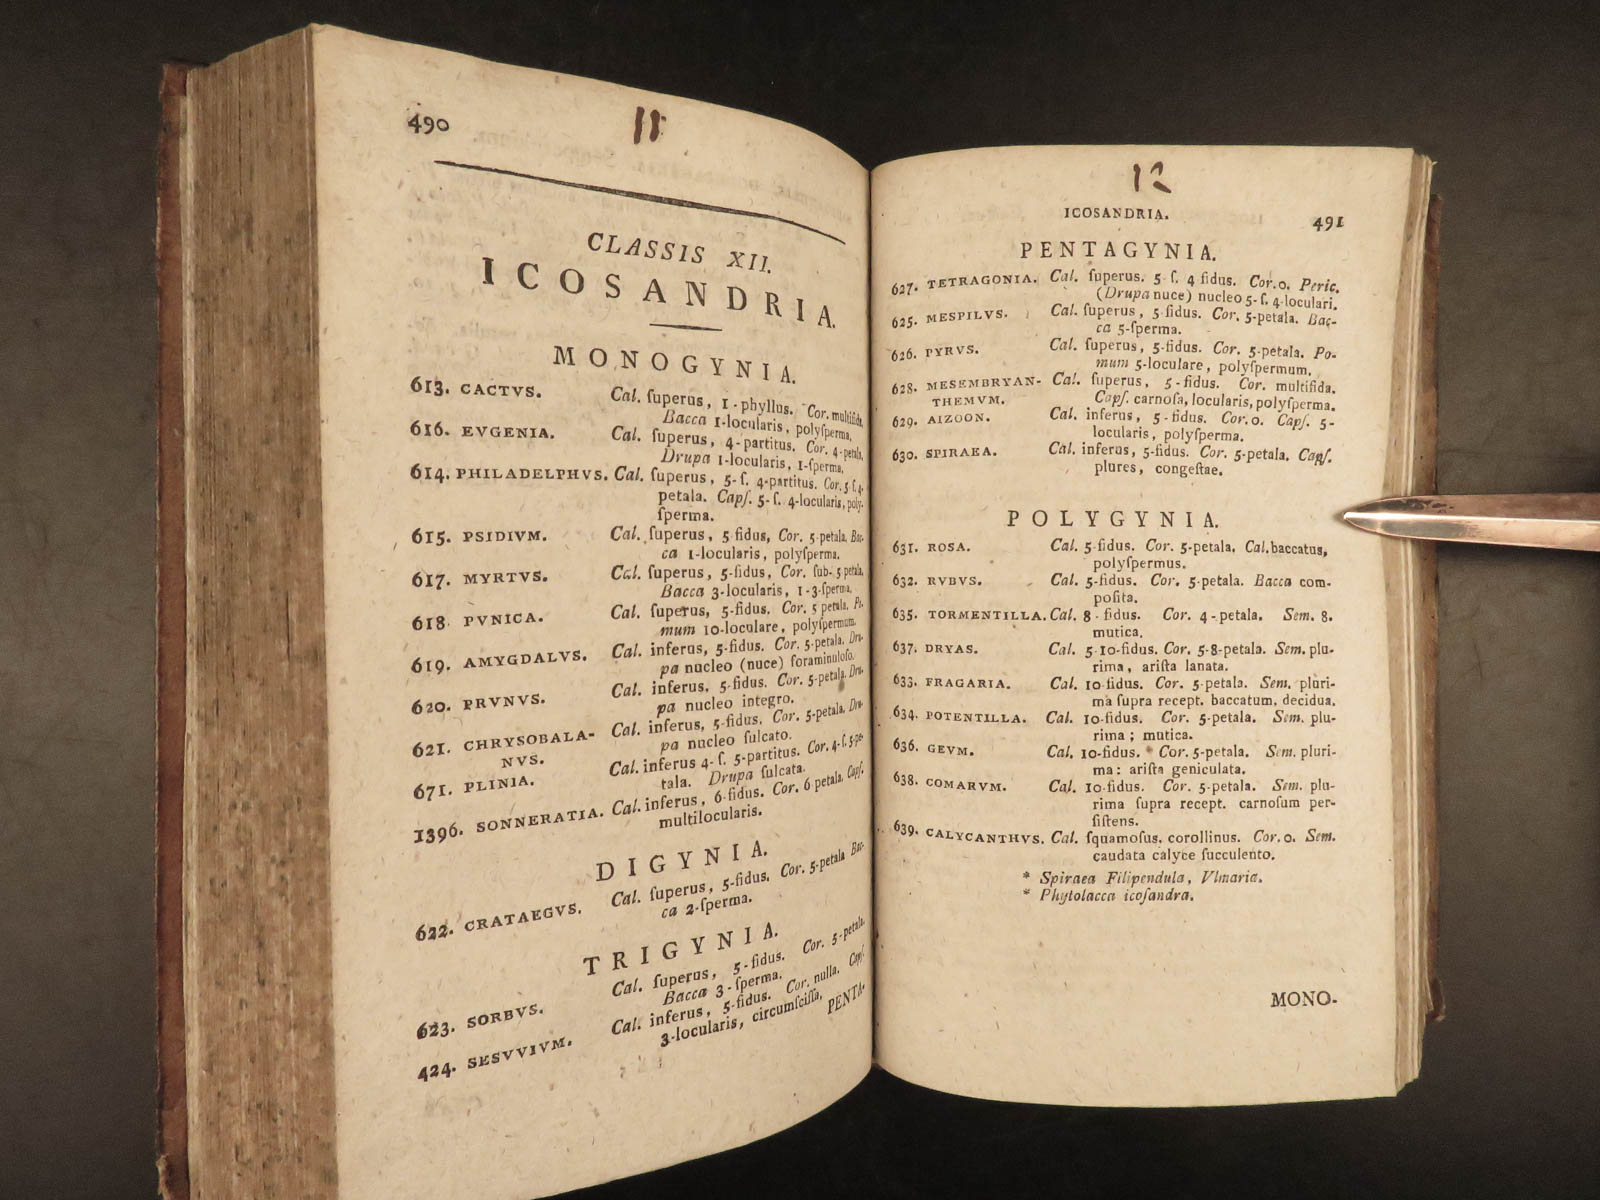 490
11
CLASSIS XII.
ICOSANDRIA.
MONOGYNIA.
613. CACTVS. Cal. ſuperus, 1-phyllus. Cor. multifida,
Bacca 1-locularis, polyſperma,
616. EVGENIA. Cal. ſuperus, 4-partitus. Cor. 4-petala,
Drupa 1-locularis, 1-ſperma,
614. PHILADELPHVS. Cal. ſuperus, 5-ſ. 4-partitus. Cor. 5. ſ. 4-
petala. Capſ. 5-ſ. 4-locularis, poly-
ſperma.
615. PSIDIVM. Cal. ſuperus, 5 fidus, Cor. 5-petala. Bac-
ca 1-locularis, polyſperma.
617. MYRTVS. Cal. ſuperus, 5-fidus, Cor. ſub- 5 petala,
Bacca 3-locularis, 1-3-ſperma.
618. PVNICA. Cal. ſuperus, 5-fidus. Cor. 5 petala. Po-
mum 10-loculare, polyſpermum.
619. AMYGDALVS. Cal. inferus, 5-fidus. Cor. 5-petala. Dru-
pa nucleo (nuce) foraminuloſo.
620. PRVNVS. Cal. inferus, 5-fidus. Cor. 5-petala. Dru-
pa nucleo integro.
621. CHRYSOBALA- Cal. inferus, 5-fidus. Cor. 5-petala, Dru-
NVS. pa nucleo ſulcato.
671. PLINIA. Cal. inferus 4-ſ. 5-partitus. Cor. 4-ſ. 5-pe-
tala. Drupa ſulcata.
1396. SONNERATIA. Cal. inferus, 6-fidus. Cor. 6 petala. Capſ.
multilocularis.
DIGYNIA.
622. CRATAEGVS. Cal. ſuperus, 5-fidus. Cor. 5-petala Bac-
ca 2-ſperma.
TRIGYNIA.
623. SORBVS. Cal. ſuperus, 5-fidus. Cor. 5-petala.
Bacca 3-ſperma.
424. SESVVIVM. Cal. inferus, 5-fidus. Cor. nulla. Capſ.
3-locularis, circumſciſſa.
PENTA-
12
ICOSANDRIA. 491
PENTAGYNIA.
627. TETRAGONIA. Cal. ſuperus. 5-ſ. 4 fidus. Cor. 0. Peric.
(Drupa nuce) nucleo 5-ſ. 4-loculari.
625. MESPILVS. Cal. ſuperus, 5-fidus. Cor. 5-petala. Bac-
ca 5-ſperma.
626. PYRVS. Cal. ſuperus, 5-fidus. Cor. 5-petala. Po-
mum 5-loculare, polyſpermum.
628. MESEMBRYAN- Cal. ſuperus, 5-fidus. Cor. multifida.
THEMVM. Capſ. carnoſa, locularis, polyſperma.
629. AIZOON. Cal. inferus, 5-fidus. Cor. 0. Capſ. 5-
locularis, polyſperma.
630. SPIRAEA. Cal. inferus, 5-fidus. Cor. 5-petala. Capſ.
plures, congeſtae.
POLYGYNIA.
631. ROSA. Cal. 5-fidus. Cor. 5-petala. Cal. baccatus,
polyſpermus.
632. RVBVS. Cal. 5-fidus. Cor. 5-petala. Bacca com-
poſita.
635. TORMENTILLA. Cal. 8-fidus. Cor. 4-petala. Sem. 8.
mutica.
637. DRYAS. Cal. 5-10-fidus. Cor. 5-8-petala. Sem. plu-
rima, ariſta lanata.
633. FRAGARIA. Cal. 10-fidus. Cor. 5-petala. Sem. pluri-
ma ſupra recept. baccatum, decidua.
634. POTENTILLA. Cal. 10-fidus. Cor. 5-petala. Sem. plu-
rima; mutica.
636. GEVM. Cal. 10-fidus. Cor. 5-petala. Sem. pluri-
ma: ariſta geniculata.
638. COMARVM. Cal. 10-fidus. Cor. 5-petala. Sem. plu-
rima ſupra recept. carnoſum per-
ſiſtens.
639. CALYCANTHVS. Cal. ſquamoſus, corollinus. Cor. 0. Sem.
caudata calyce ſucculento.
* Spiraea Filipendula, Vlmaria.
* Phytolacca icoſandra.
MONO-